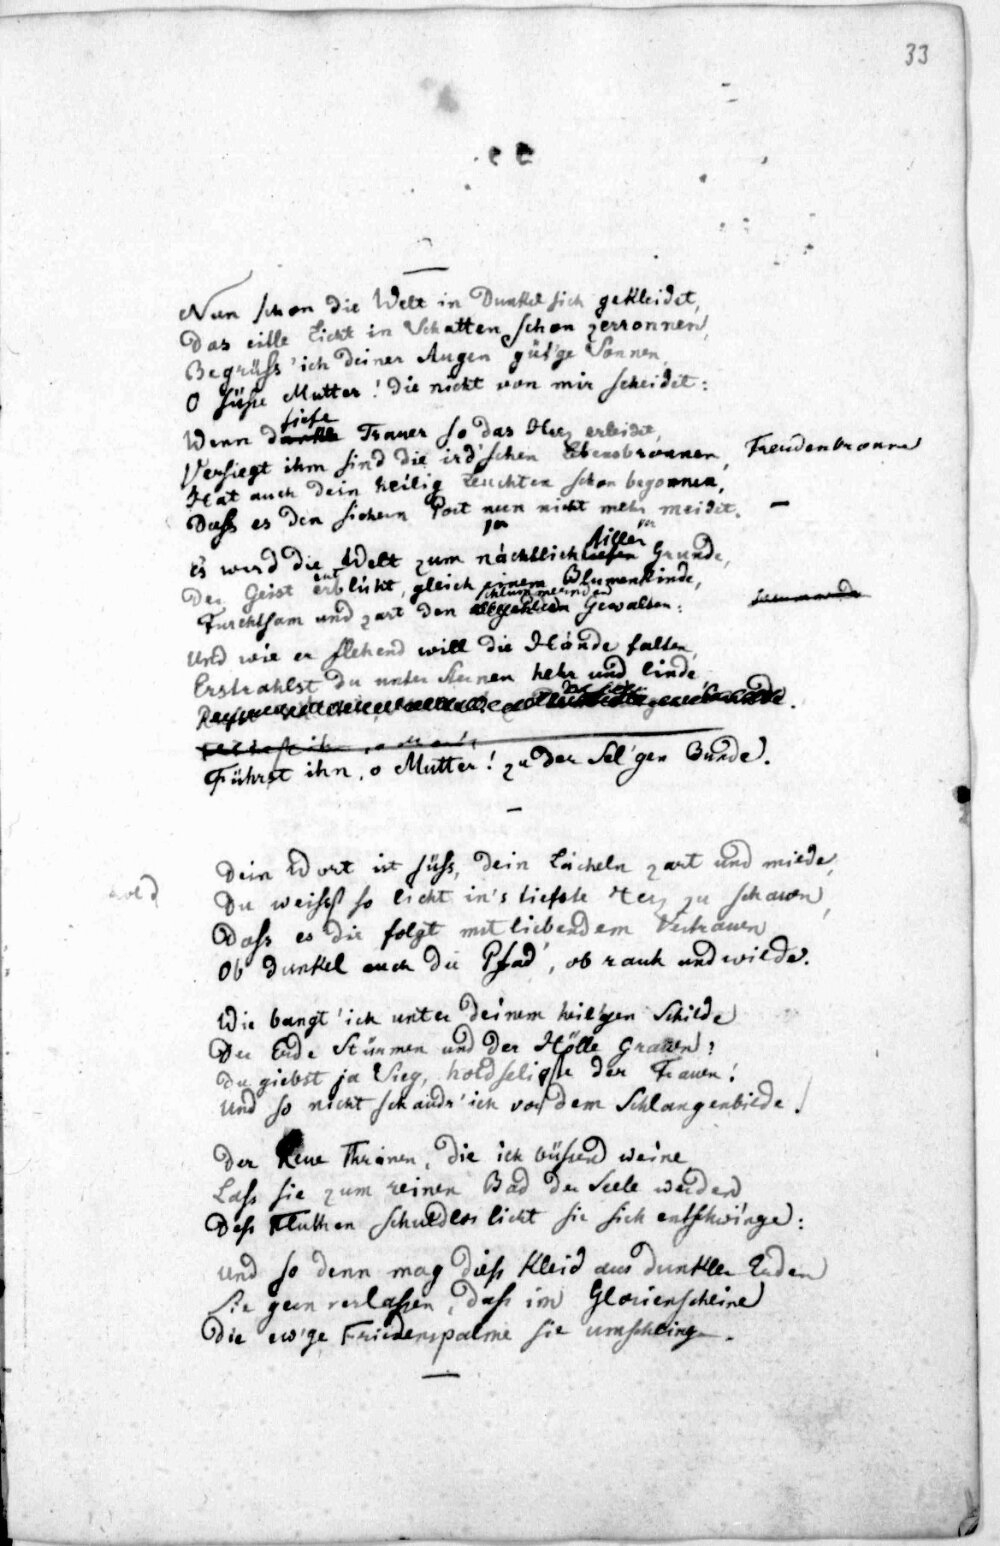 33
Nun schon die Welt in Dunkel sich gekleidet,
Das eitle Licht in Schatten schon zerronnen,
Begrüss' ich deiner Augen güt'ge Sonnen,
O süsse Mutter! die nicht von mir scheidet:
tiefe
Wenn dunkle Trauer so das Herz erleidet,
Versiegt ihm sind die ird'schen Lebensbronnen, Freudenbronnen
Hat auch dein heilig Leuchten schon begonnen,
Dass es den sichern Port nun nicht mehr meidet. –
stiller
Es wird die Welt zum nächtlich tiefen Grunde,
ent
Der Geist erblüht, gleich einem Blumenkinde,
schlummernden
Furchtsam und zart den Gewalten:
Und wie er flehend will die Hände falten,
Erstrahlst du unter Sternen hehr und linde,
Führst ihn, o Mutter! zu der Sel'gen Bunde.
Dein Wort ist süss, dein Lächeln zart und milde,
hold
Du weisst so licht in's tiefste Herz zu schauen,
Dass es dir folgt mit liebendem Vertrauen
Ob dunkel auch der Pfad, ob rauh und wilde.
Wie bangt' ich unter deinem heil'gen Schilde
Der Erde Stürmen und der Hölle Grauen?
Du giebst ja Sieg, holdseligste der Frauen!
Und so nicht schaudr' ich vor dem Schlangenbilde.
Der Reue Thränen, die ich büssend weine,
Lass sie zum reinen Bad der Seele werden,
Dess Fluthen schuldlos licht sie sich entschwinge:
Und so denn mag diess Kleid aus dunkler Erden
Sie gern verlassen, dass im Glorienscheine
Die ew'ge Friedenspalme sie umschlinge.